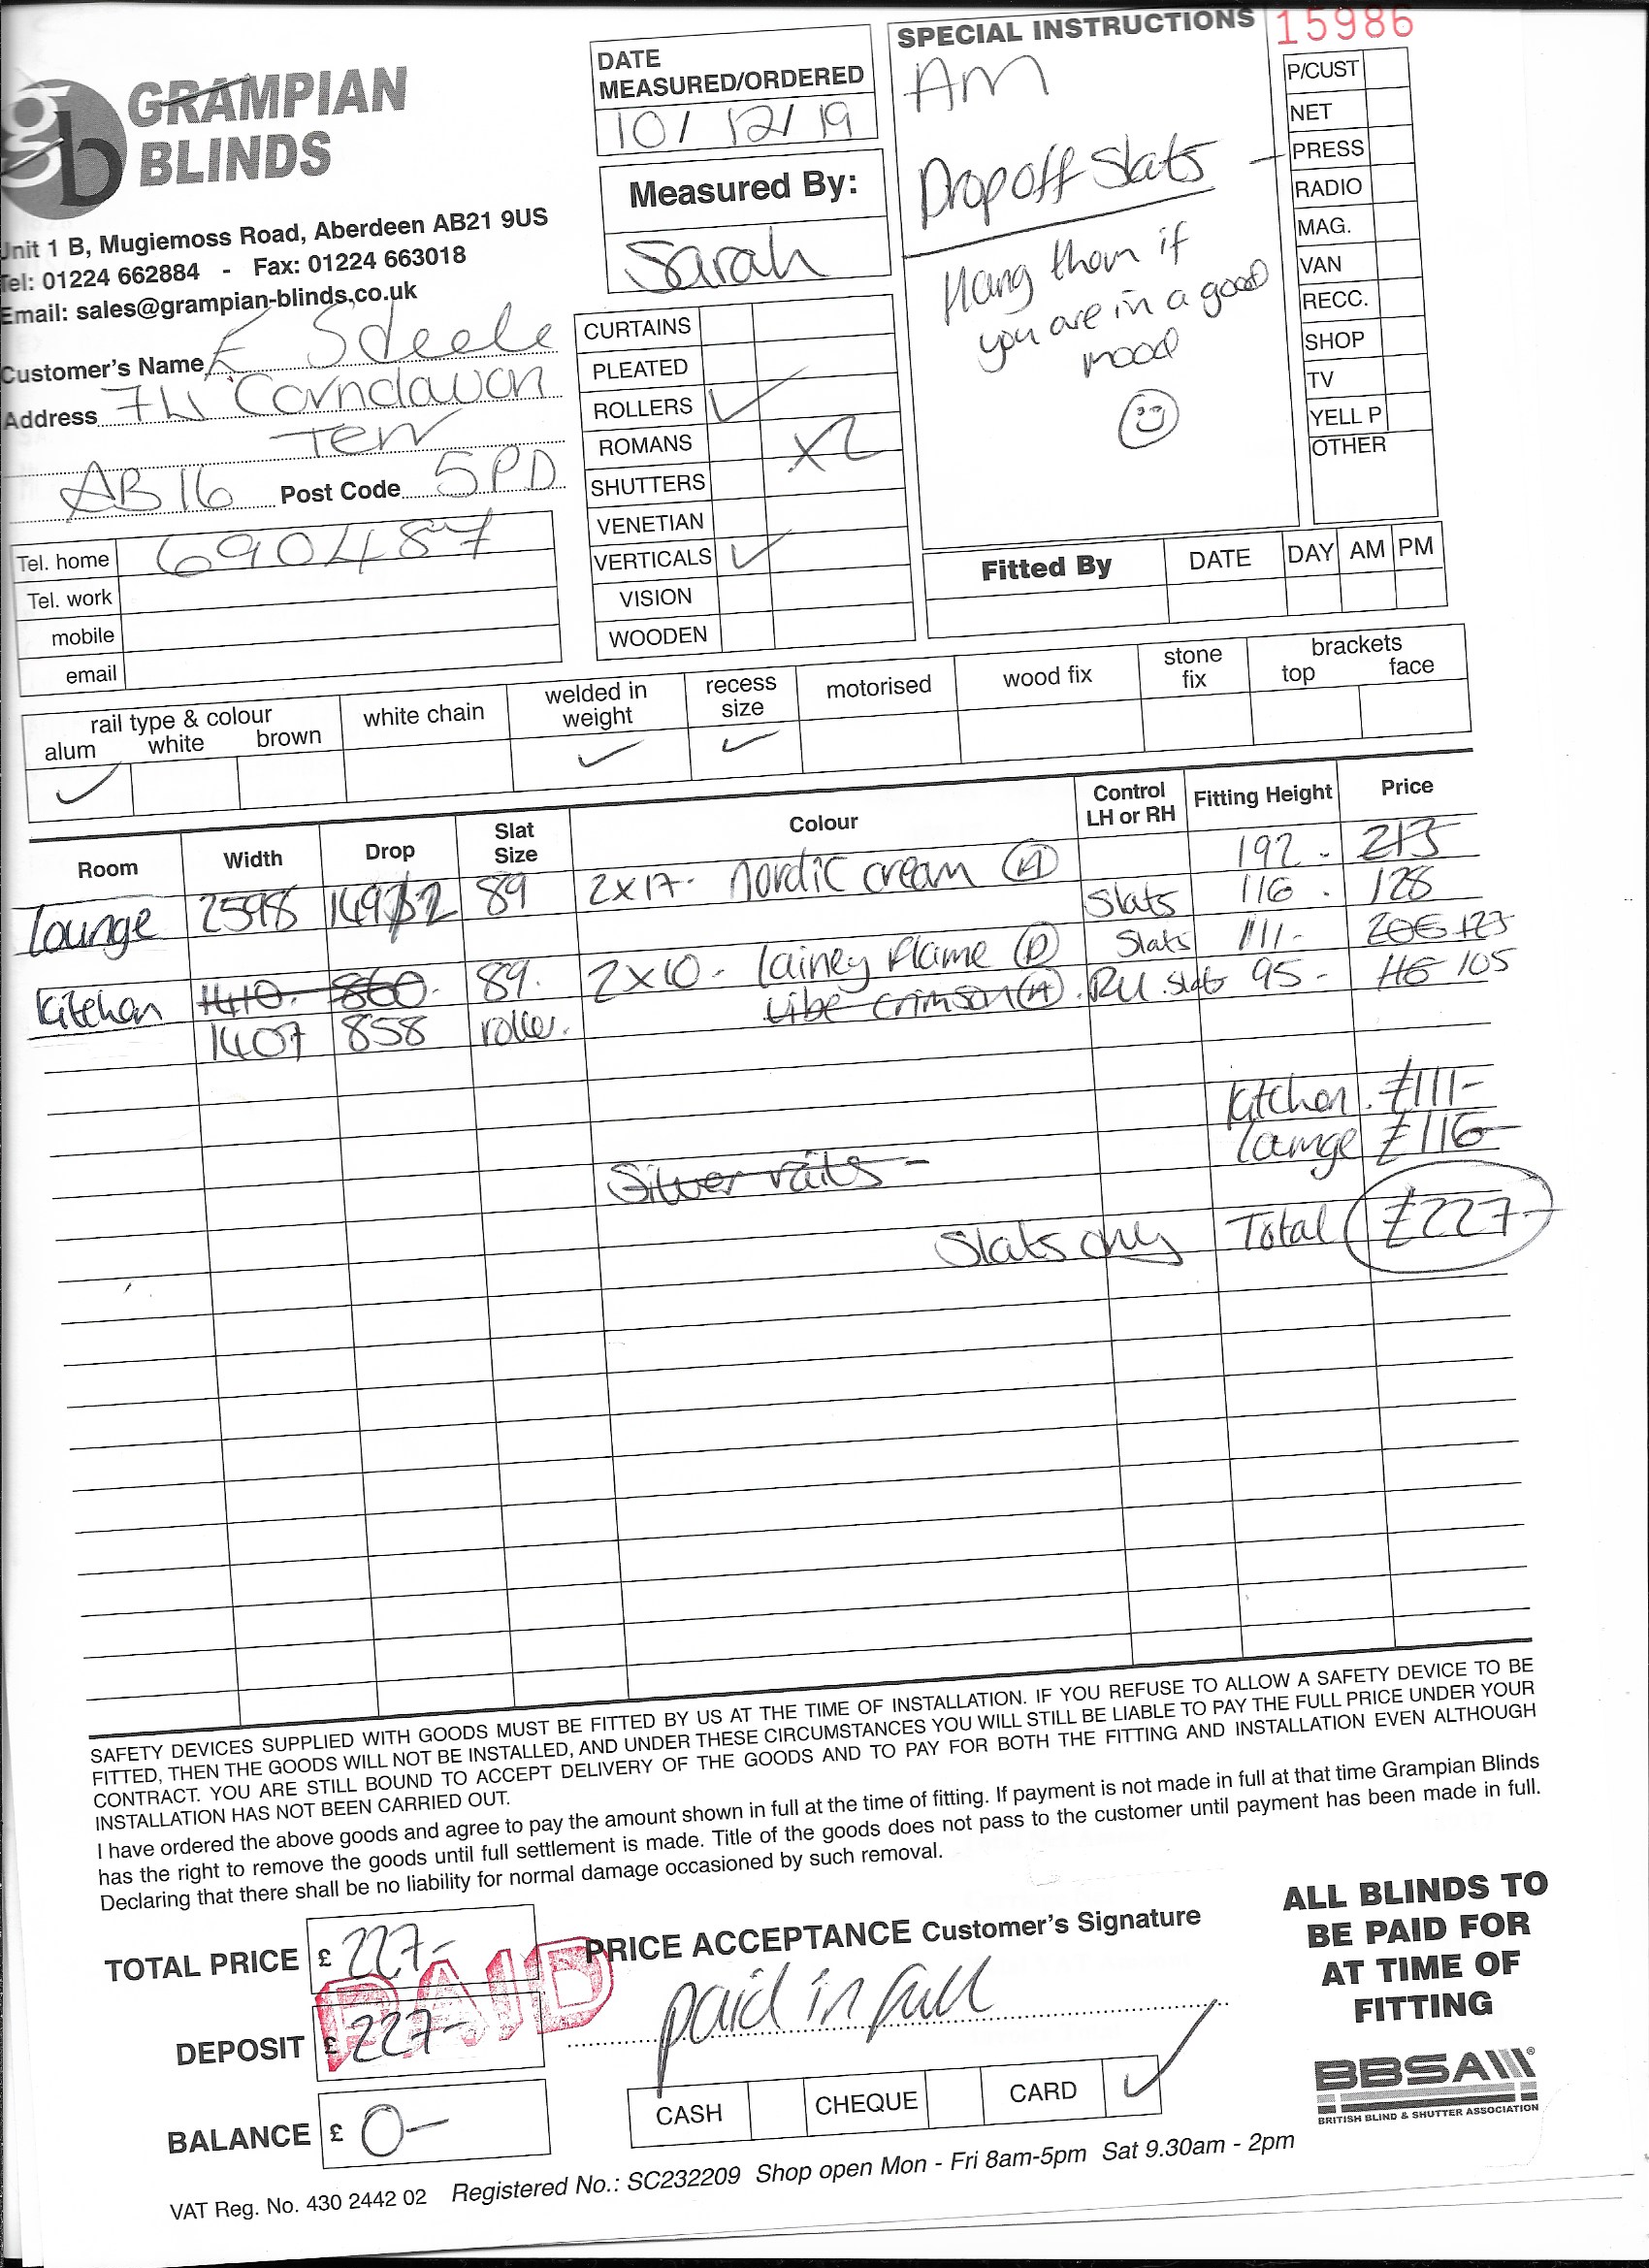 15986
GRAMPIAN
BLINDS
Unit 1 B, Mugiemoss Road, Aberdeen AB21 9US
Tel: 01224 662884 - Fax: 01224 663018
Email: sales@grampian-blinds.co.uk
Customer's Name E Steele
Address 74 Corndavon
Terr
AB16 Post Code 5PD
Tel. home 690487
Tel. work
mobile
email
DATE
MEASURED/ORDERED
10/12/19
Measured By:
Sarah
CURTAINS
PLEATED
ROLLERS ✓
ROMANS x2
SHUTTERS
VENETIAN
VERTICALS ✓
VISION
WOODEN
SPECIAL INSTRUCTIONS
AM
Drop off Slats -
Hang them if
you are in a good
mood
P/CUST
NET
PRESS
RADIO
MAG.
VAN
RECC.
SHOP
TV
YELL P
OTHER
Fitted By DATE DAY AM PM
rail type & colour
alum white brown
white chain
welded in
weight
recess
size
motorised
wood fix
stone
fix
brackets
top face
✓ ✓ ✓
Room Width Drop Slat Size Colour Control LH or RH Fitting Height Price
192 - 213
lounge 2598 89 2x17- nordic cream (A) Slats 116 - 128
Slats 111-
kitchen 1410- 860- 89. 2x10- lainey flame (D) 95- 105
vibe crimson (A)
1407 858 roller.
kitchen. £111-
lounge £116-
Silver rails -
Slats only Total £227-
SAFETY DEVICES SUPPLIED WITH GOODS MUST BE FITTED BY US AT THE TIME OF INSTALLATION. IF YOU REFUSE TO ALLOW A SAFETY DEVICE TO BE
FITTED, THEN THE GOODS WILL NOT BE INSTALLED, AND UNDER THESE CIRCUMSTANCES YOU WILL STILL BE LIABLE TO PAY THE FULL PRICE UNDER YOUR
CONTRACT. YOU ARE STILL BOUND TO ACCEPT DELIVERY OF THE GOODS AND TO PAY FOR BOTH THE FITTING AND INSTALLATION EVEN ALTHOUGH
INSTALLATION HAS NOT BEEN CARRIED OUT.
I have ordered the above goods and agree to pay the amount shown in full at the time of fitting. If payment is not made in full at that time Grampian Blinds
has the right to remove the goods until full settlement is made. Title of the goods does not pass to the customer until payment has been made in full.
Declaring that there shall be no liability for normal damage occasioned by such removal.
TOTAL PRICE £ 227-
DEPOSIT £ 227-
BALANCE £ 0-
PAID
PRICE ACCEPTANCE Customer's Signature
paid in full
CASH CHEQUE CARD ✓
ALL BLINDS TO
BE PAID FOR
AT TIME OF
FITTING
BBSA
BRITISH BLIND & SHUTTER ASSOCIATION
VAT Reg. No. 430 2442 02 Registered No.: SC232209 Shop open Mon - Fri 8am-5pm Sat 9.30am - 2pm